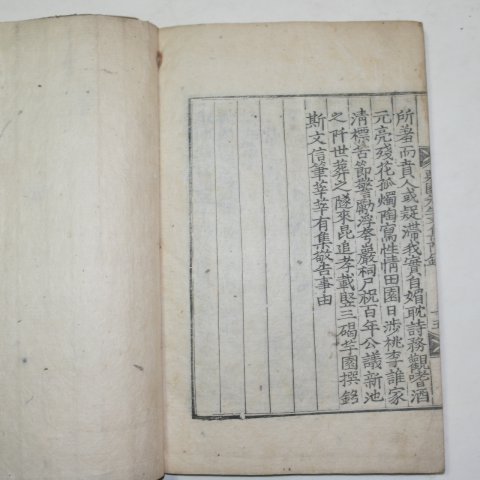 所羞而責人或疑滯我實自媚耽詩務觀嗜酒
元亮殘花孤燭陶寫性情田園日涉桃李誰家
清標苦節警勵浮夸巖祠尸祝百年公議新池
之阡世葬之隧來昆追孝載竪三碣芋園撰銘
斯文信筆莘莘有集敬告事由